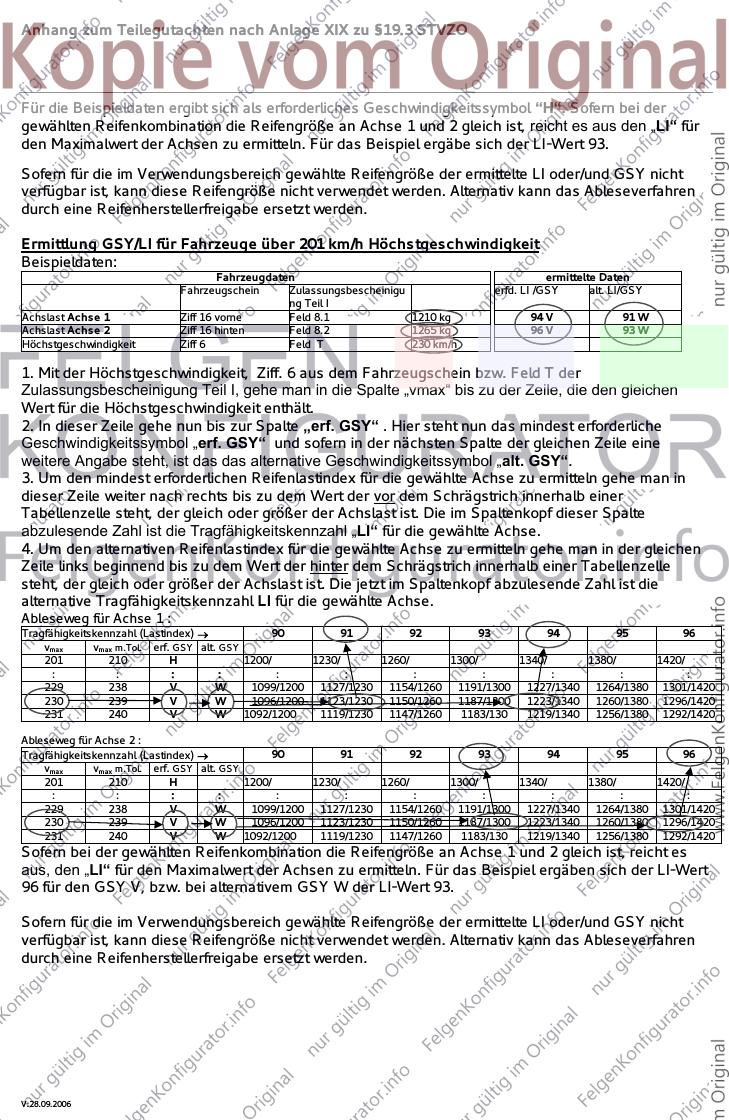 Anhang zum Teilegutachten nach Anlage XIX zu §19.3 STVZO
Kopie vom Original
Für die Beispieldaten ergibt sich als erforderliches Geschwindigkeitssymbol “H“. Sofern bei der
gewählten Reifenkombination die Reifengröße an Achse 1 und 2 gleich ist, reicht es aus den „LI“ für
den Maximalwert der Achsen zu ermitteln. Für das Beispiel ergäbe sich der LI-Wert 93.
Sofern für die im Verwendungsbereich gewählte Reifengröße der ermittelte LI oder/und GSY nicht
verfügbar ist, kann diese Reifengröße nicht verwendet werden. Alternativ kann das Ableseverfahren
durch eine Reifenherstellerfreigabe ersetzt werden.
Ermittlung GSY/LI für Fahrzeuge über 201 km/h Höchstgeschwindigkeit
Beispieldaten:
Fahrzeugdaten ermittelte Daten
Fahrzeugschein Zulassungsbescheinigu erfd. LI /GSY alt. LI/GSY
ng Teil I
Achslast Achse 1 Ziff 16 vorne Feld 8.1 1210 kg 94 V 91 W
Achslast Achse 2 Ziff 16 hinten Feld 8.2 1265 kg 96 V 93 W
Höchstgeschwindigkeit Ziff 6 Feld T 230 km/h
1. Mit der Höchstgeschwindigkeit, Ziff. 6 aus dem Fahrzeugschein bzw. Feld T der
Zulassungsbescheinigung Teil I, gehe man in die Spalte „vmax“ bis zu der Zeile, die den gleichen
Wert für die Höchstgeschwindigkeit enthält.
2. In dieser Zeile gehe nun bis zur Spalte „erf. GSY“ . Hier steht nun das mindest erforderliche
Geschwindigkeitssymbol „erf. GSY“ und sofern in der nächsten Spalte der gleichen Zeile eine
weitere Angabe steht, ist das das alternative Geschwindigkeitssymbol „alt. GSY“.
3. Um den mindest erforderlichen Reifenlastindex für die gewählte Achse zu ermitteln gehe man in
dieser Zeile weiter nach rechts bis zu dem Wert der vor dem Schrägstrich innerhalb einer
Tabellenzelle steht, der gleich oder größer der Achslast ist. Die im Spaltenkopf dieser Spalte
abzulesende Zahl ist die Tragfähigkeitskennzahl „LI“ für die gewählte Achse.
4. Um den alternativen Reifenlastindex für die gewählte Achse zu ermitteln gehe man in der gleichen
Zeile links beginnend bis zu dem Wert der hinter dem Schrägstrich innerhalb einer Tabellenzelle
steht, der gleich oder größer der Achslast ist. Die jetzt im Spaltenkopf abzulesende Zahl ist die
alternative Tragfähigkeitskennzahl LI für die gewählte Achse.
Ableseweg für Achse 1 :
Tragfähigkeitskennzahl (Lastindex) → 90 91 92 93 94 95 96
vmax vmax m.Tol. erf. GSY alt. GSY
201 210 H 1200/ 1230/ 1260/ 1300/ 1340/ 1380/ 1420/
: : : : : : : : : : :
229 238 V W 1099/1200 1127/1230 1154/1260 1191/1300 1227/1340 1264/1380 1301/1420
230 239 V W 1096/1200 1123/1230 1150/1260 1187/1300 1223/1340 1260/1380 1296/1420
231 240 V W 1092/1200 1119/1230 1147/1260 1183/130 1219/1340 1256/1380 1292/1420
Ableseweg für Achse 2 :
Tragfähigkeitskennzahl (Lastindex) → 90 91 92 93 94 95 96
vmax vmax m.Tol. erf. GSY alt. GSY
201 210 H 1200/ 1230/ 1260/ 1300/ 1340/ 1380/ 1420/
: : : : : : : : : : :
229 238 V W 1099/1200 1127/1230 1154/1260 1191/1300 1227/1340 1264/1380 1301/1420
230 239 V W 1096/1200 1123/1230 1150/1260 1187/1300 1223/1340 1260/1380 1296/1420
231 240 V W 1092/1200 1119/1230 1147/1260 1183/130 1219/1340 1256/1380 1292/1420
Sofern bei der gewählten Reifenkombination die Reifengröße an Achse 1 und 2 gleich ist, reicht es
aus, den „LI“ für den Maximalwert der Achsen zu ermitteln. Für das Beispiel ergäben sich der LI-Wert
96 für den GSY V, bzw. bei alternativem GSY W der LI-Wert 93.
Sofern für die im Verwendungsbereich gewählte Reifengröße der ermittelte LI oder/und GSY nicht
verfügbar ist, kann diese Reifengröße nicht verwendet werden. Alternativ kann das Ableseverfahren
durch eine Reifenherstellerfreigabe ersetzt werden.
V:28.09.2006
FELGEN
KONFIGURATOR
FelgenKonfigurator.info
www.FelgenKonfigurator.info
nur gültig im Original